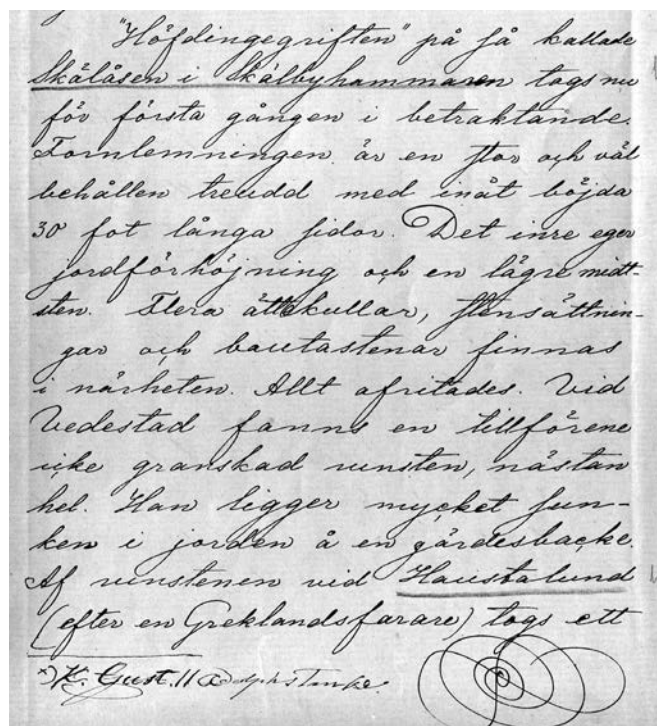 "Höfdingegriften" på så kallade
Skälåsen i Skälbyhammaren togs nu
för första gången i betraktande.
Fornlemningen är en stor och väl
behållen treudd med inåt böjda
30 fot långa sidor. Det inre eger
jordförhöjning och en lägre midt-
sten. Flera ättekullar, stensättnin-
gar och bautastenar finnas
i närheten. Allt afritades. Vid
Vedestad fanns en tillförene
icke granskad runsten, nästan
hel. Han ligger mycket sun-
ken i jorden å en gärdesbacke.
Af runstenen vid Haustalund
(efter en Greklandsfarare) togs ett
x) K. Gust. II Adolphs